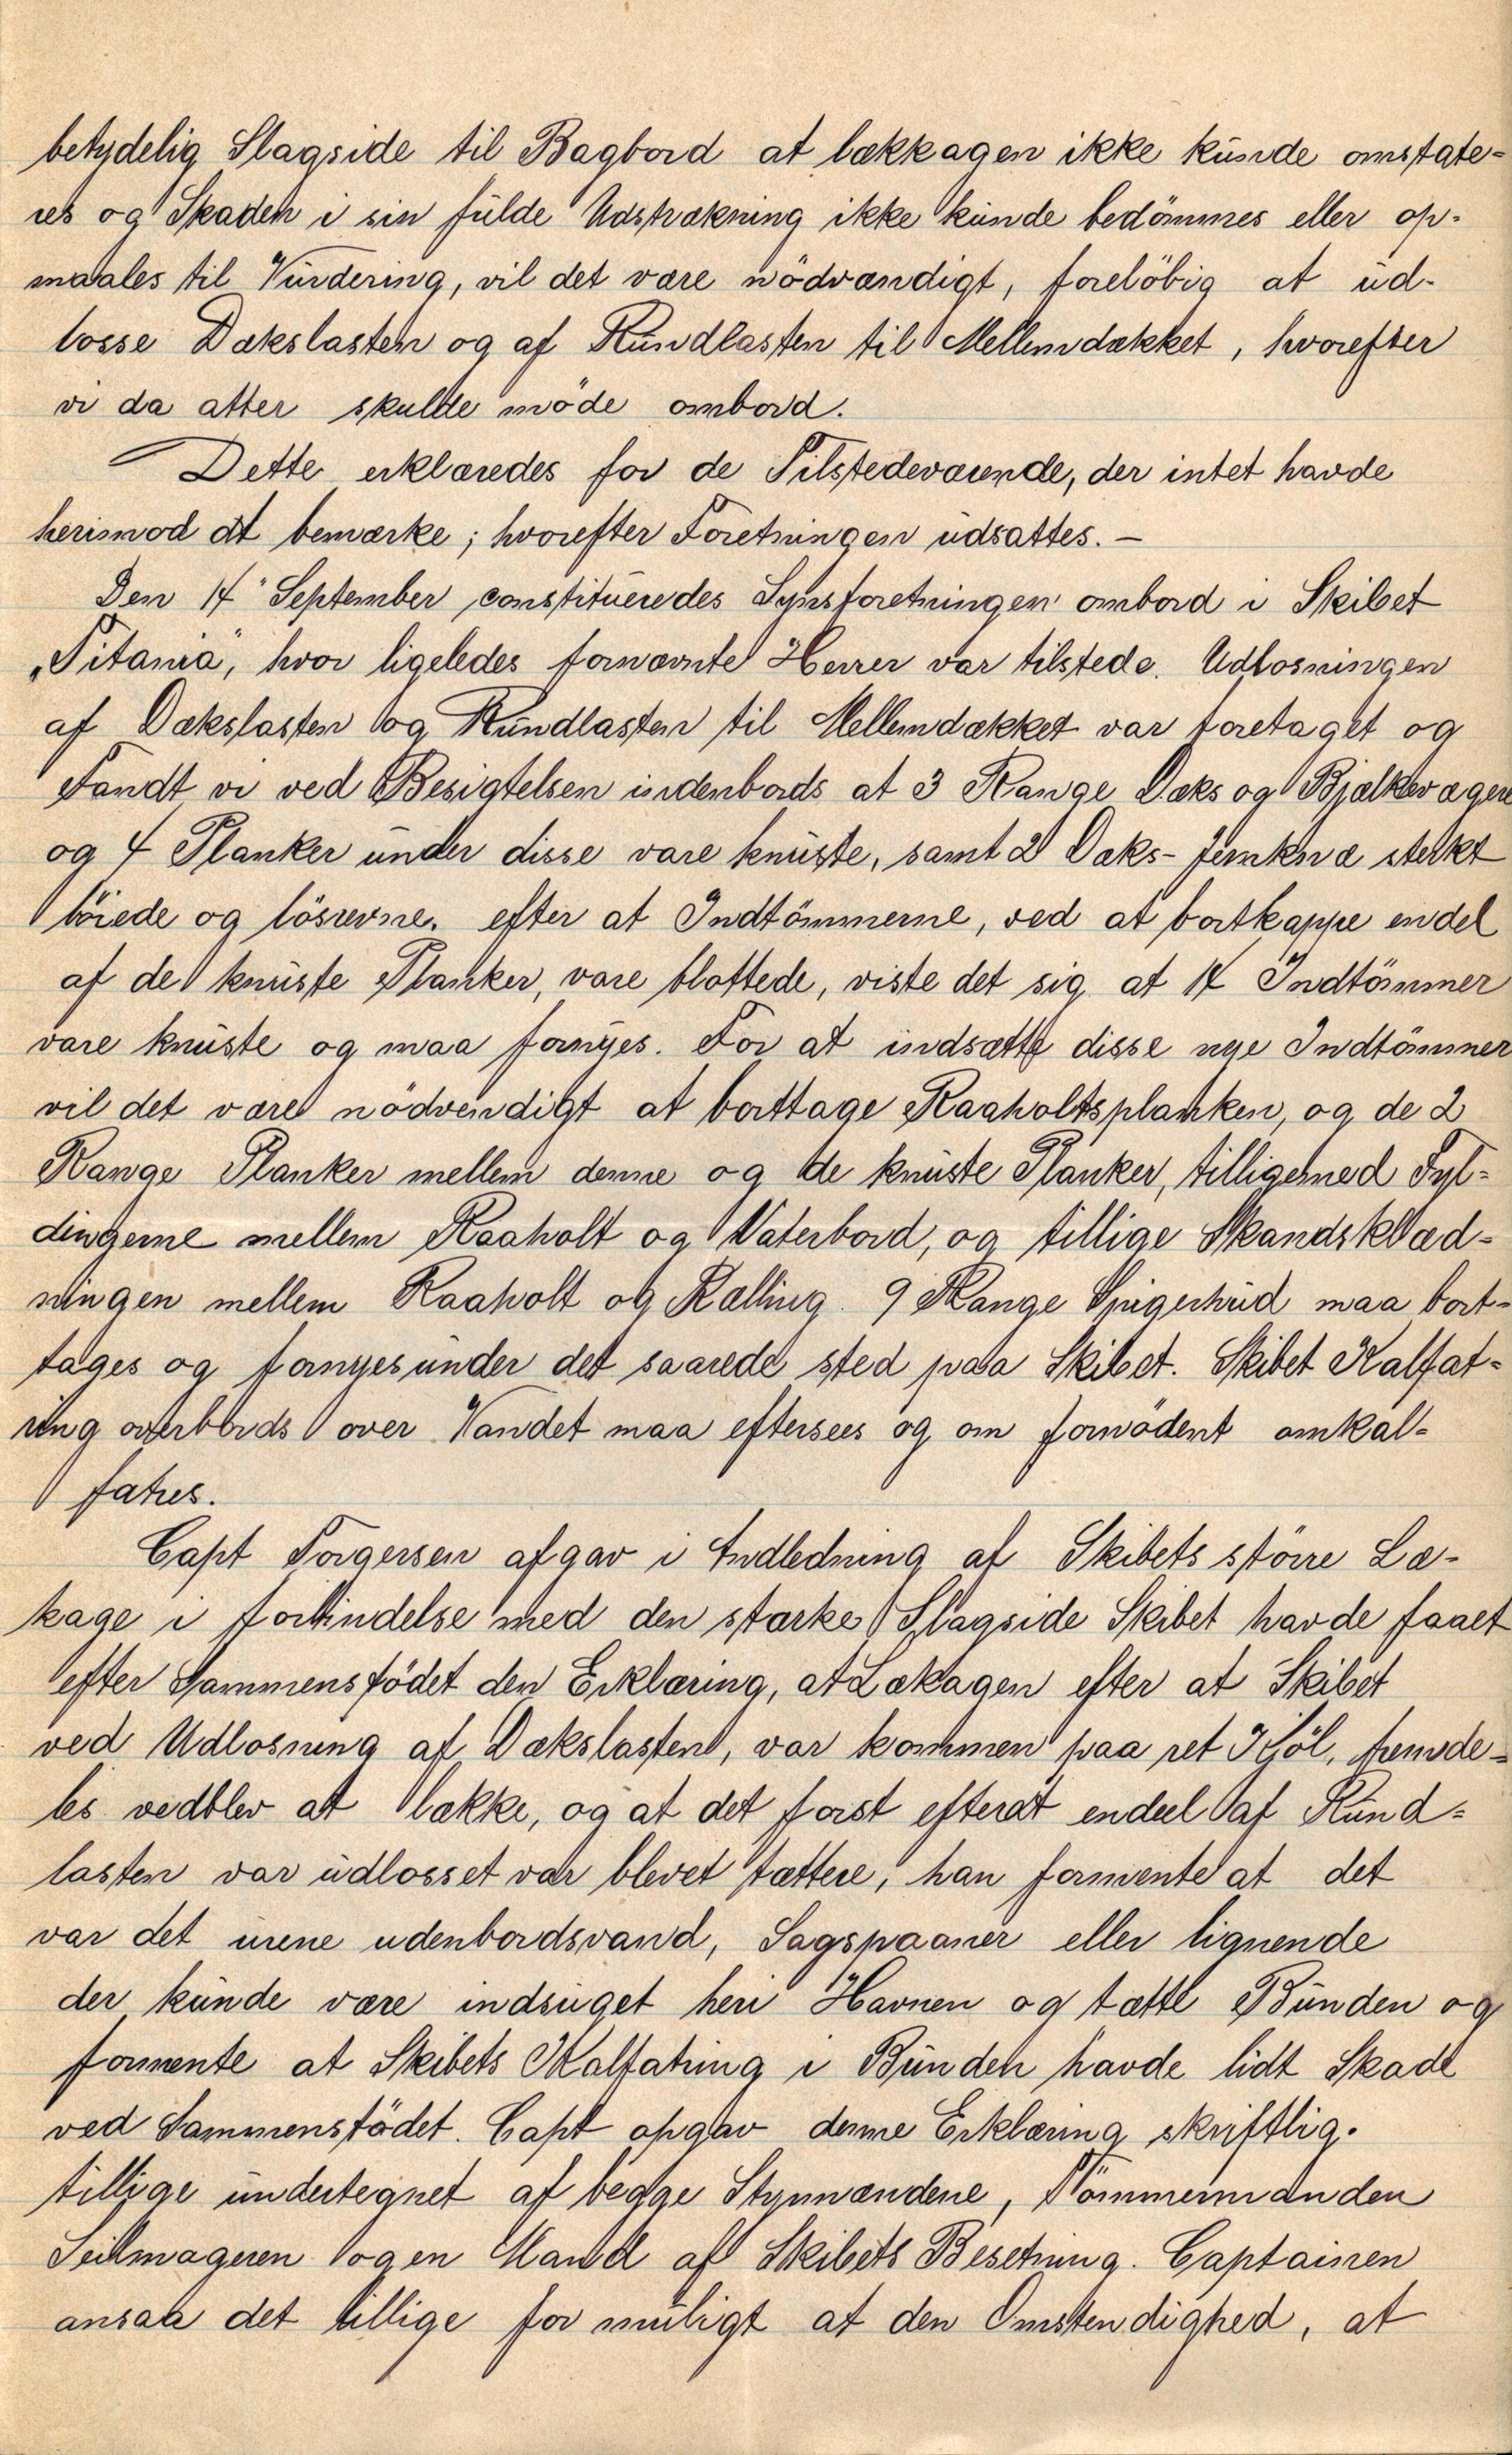 betydelig Slagside til Bagbord at lækkagen ikke kunde omstate=
res og Skaden i sin fulde Udstrækning ikke kunde bedömmes eller op-
maales til Vurdering, vil det være nödvændigt, forelöbig at ud-
losse Dækslasten og af Rundlasten til Mellemdækket, hvorefter
vi da atter skulde möde ombord.
Dette erklæredes for de Tilstedeværende, der intet havde
herimod at bemærke; hvorefter Foretningen udsattes. —
Den 14" September constitueredes Synsforetningen ombord i Skibet
„Titania", hvor ligeledes fornævnte Herrer var tilstede. Udlosningen
af Dækslasten og Rundlasten til Mellemdækket var foretaget og
Fandt vi ved Besigtelsen indenbords at 3 Range Dæks og Bjælkevægere
og 4 Planker under disse vare knuste, samt 2 Dæks-Jernknæ sterkt
böiede og lösrevne. efter at Indtömmerne, ved at bortkappe endel
af de knuste Planker, vare blottede, viste det sig at 14 Indtömmer
vare knuste og maa fornyes. For at indsætte disse nye Indtömmer
vil det være nödvendigt at borttage Raaholtsplanken, og de 2
Range Planker mellem denne og de knuste Planker, tilligemed Fyl=
dingerne mellem Raaholt og Vaterbord, og tillige Skandsklæd=
ningen mellem Raaholt og Rælling. 9 Range Spigerhud maa bort=
tages og fornyes under det saarede sted paa Skibet. Skibet Kalfat=
ring overbords over Vandet maa eftersees og om fornödent omkal=
fatres.
Capt Torgersen afgav i Andledning af Skibets större Læ-
kage i forbindelse med den stærke Slagside Skibet havde faaet
efter Sammenstödet den Erklæring, at Lækagen efter at Skibet
ved Udlosning af Dækslasten, var kommen paa ret Kjöl, fremde=
les vedblev at lække, og at det forst efterat endeel af Rund=
lasten var udlosset var blevet tættere, han formente at det
var det urene udenbordsvand, Sagspaaner eller lignende
der kunde være indsuget heri Havnen og tætte Bunden og
formente at Skibets Kalfatring i Bunden havde lidt Skade
ved Sammenstödet. Capt opgav denne Erklæring skriftlig.
tillige undertegnet af begge Styrmændene, Tömmermanden
Seilmageren og en Mand af Skibets Besetning. Captainen
ansaa det tillige for muligt at den Omstendighed, at